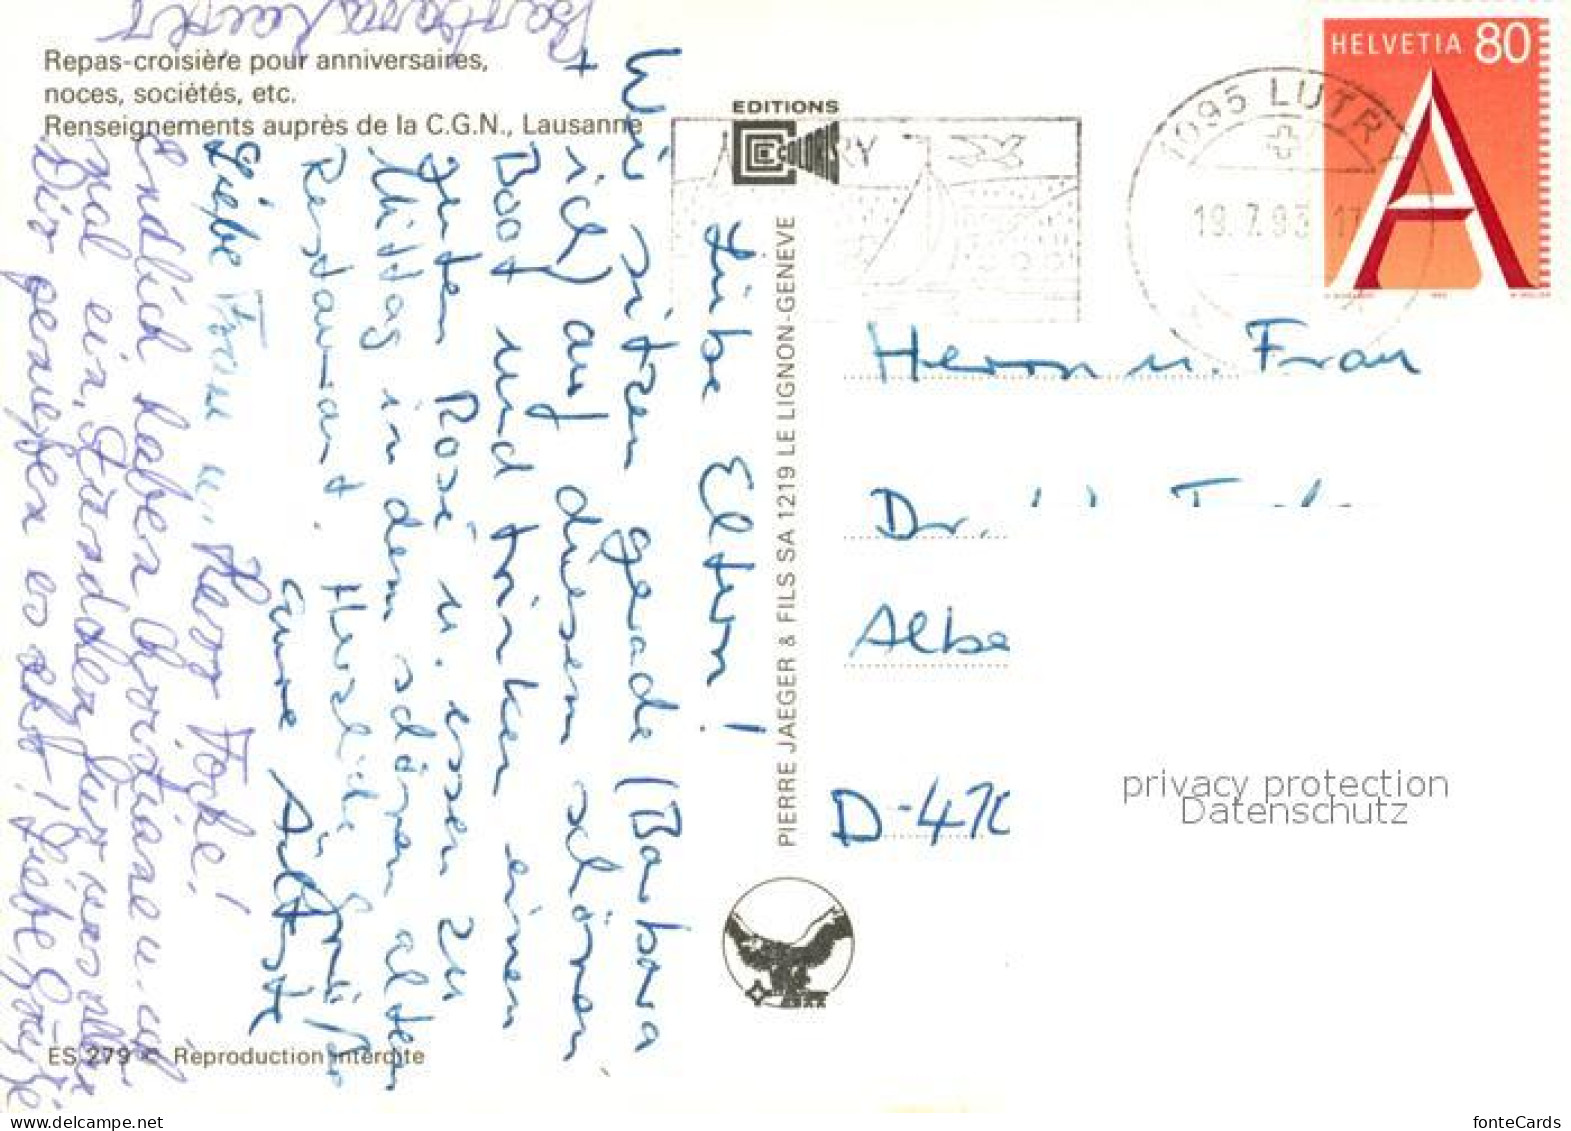 Repas-croisière pour anniversaires,
noces, sociétés, etc.
Renseignements auprès de la C.G.N., Lausanne
EDITIONS
HELVETIA 80
A
1095 LUTRY
19.7.93 17
PIERRE JAEGER & FILS SA 1219 LE LIGNON-GENÈVE
Liebe Eltern!
Wir sitzen gerade (Barbara
+ ich) auf diesem schönen
Boot und trinken einen
guten Rosé u. essen zu
Mittag in dem schönen alten
Restaurant. Herzliche Grüße
Eure Älteste
Liebe Frau u. Herr
Endlich haben Christiane u. ich
mal ein
Dir genießen es sehr! Liebe Grüße
Barbara
Herrn u. Frau
Dr.
Albe
D-47
ES 279 © Reproduction interdite
privacy protection
Datenschutz
www.delcampe.net
fonteCards